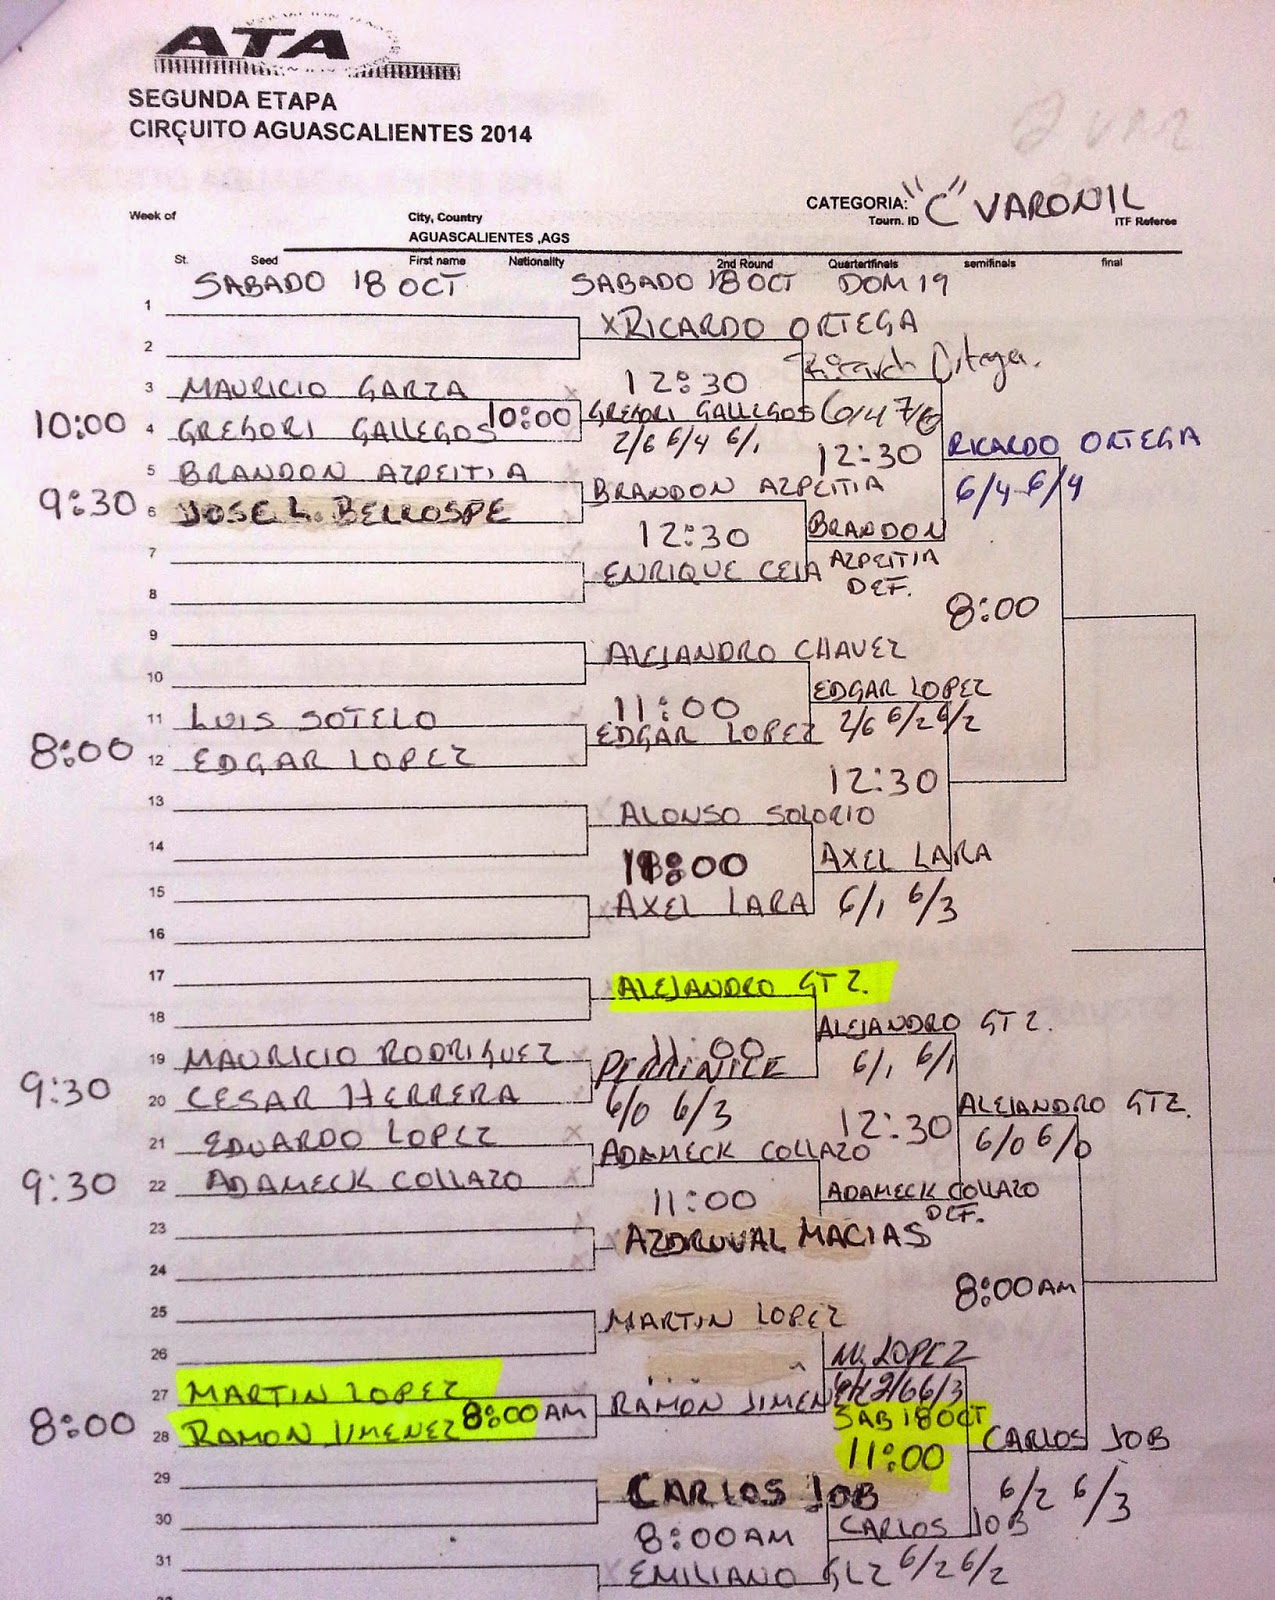 ATA
SEGUNDA ETAPA
CIRÇUITO AGUASCALIENTES 2014
CATEGORIA: "C" VARONIL
Week of City, Country Tourn. ID ITF Referee
AGUASCALIENTES ,AGS
St. Seed First name Nationality 2nd Round Quarterfinals semifinals final
SABADO 18 OCT SABADO 18 OCT DOM 19
1
XRICARDO ORTEGA
2
Ortega.
3 MAURICIO GARZA 12:30
10:00 4 GREGORI GALLEGOS 10:00 GREGORI GALLEGOS 6/4 7/6
2/6 6/4 6/1 12:30 RICARDO ORTEGA
5 BRANDON AZPEITIA BRANDON AZPEITIA 6/4 6/4
9:30 6 JOSE L. BELLOSPE
12:30 BRANDON
7 AZPEITIA
8 ENRIQUE CEJA DEF.
8:00
9
ALEJANDRO CHAVEZ
10
EDGAR LOPEZ
11 LUIS SOTELO 11:00 2/6 6/2 6/2
8:00 12 EDGAR LOPEZ EDGAR LOPEZ
12:30
13
ALONSO SOLORIO
14
11:00 AXEL LARA
15
AXEL LARA 6/1 6/3
16
17
ALEJANDRO GTZ.
18
ALEJANDRO GTZ.
19 MAURICIO RODRIGUEZ 11:00 6/1 6/1
9:30 20 CESAR HERRERA
6/0 6/3 12:30 ALEJANDRO GTZ.
21 EDUARDO LOPEZ ADAMECK COLLAZO 6/0 6/0
9:30 22 ADAMECK COLLAZO
11:00 ADAMECK COLLAZO
DEF.
23
AZDRUVAL MACIAS
24
8:00 AM
25
MARTIN LOPEZ
26
M. LOPEZ
27 MARTIN LOPEZ 2/6 6/3
8:00 28 RAMON JIMENEZ 8:00 AM RAMON JIMENEZ
SAB 18 OCT
11:00 CARLOS JOB
29
CARLOS JOB 6/2 6/3
30
8:00 AM CARLOS JOB
31 EMILIANO GLZ 6/2 6/2